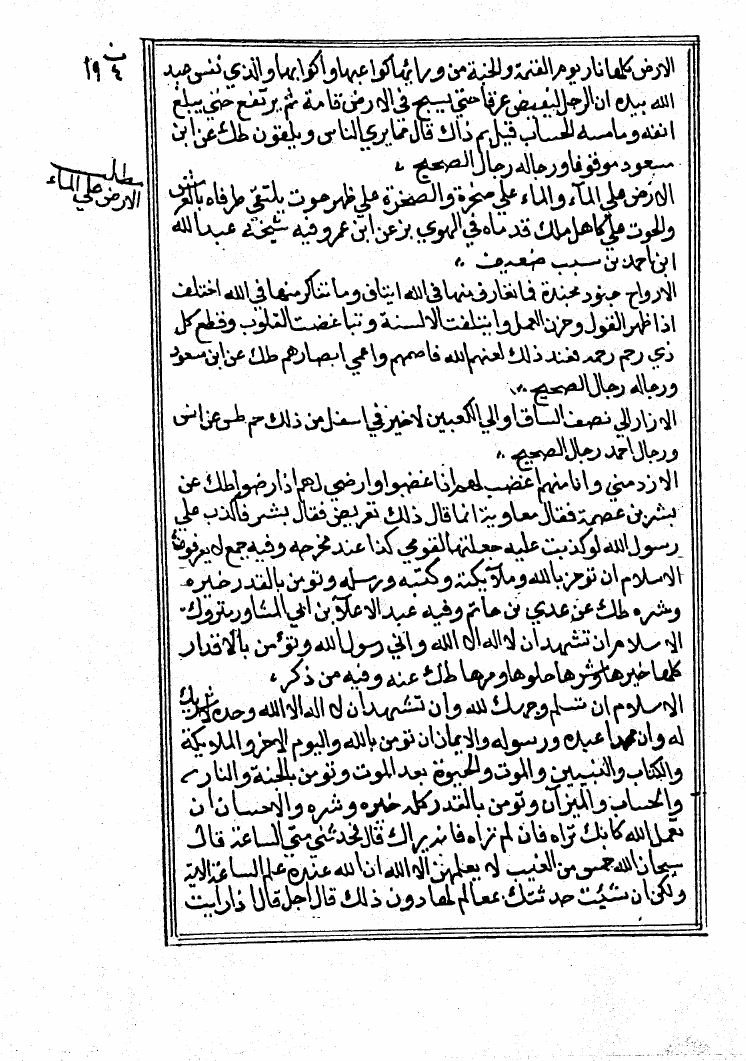 الارض كلها نار يوم القيمة والجنة من ورائها كواعبها واكوابها والذي نفسي عبد
الله بيده ان الرجل ليفيض عرقا حتى يسيح في الارض قامة ثم يرتفع حتى يبلغ
انفه وما مسه الحساب قيل بم ذاك قال مما يري الناس ويلقون طك عن ابن
مسعود موقوفا ورجاله رجال الصحيح
الارض على المآء والماء على صخرة والصخرة على ظهر حوت يلتقي طرفاه بالعرش
والحوت على كاهل ملك قدماه في الهوي بز عن ابن عمر وفيه شيخه عبد الله
ابن احمد بن سبب ضعيف
الارواح جنود مجندة فما تعارف منها في الله ايتلف وما تناكر منها في الله اختلف
اذا ظهر القول وخزن العمل وايتلفت الالسنة وتباغضت القلوب وقطع كل
ذي رحم رحمه فعند ذلك لعنهم الله فاصمهم واعمي ابصارهم طك عن ابن مسعود
ورجاله رجال الصحيح
الازار الي نصف الساق او الي الكعبين لا خير في اسفل من ذلك حم طس عن انس
ورجال احمد رجال الصحيح
الازد مني وانا منهم اغضب لهم اذا غضبوا وارضي لهم اذا رضوا طك عن
بشر بن عصمة فقال معاوية انما قال ذلك تعريض فقال بشر فاكذب علي
رسول الله لو كذبت عليه جعلتها لقومي كذا عند مخرجه وفيه جمع لا يعرفون
الاسلام ان تومن بالله وملآيكته وكتبه ورسله وتومن بالقدر خيره
وشره طك عن عدي بن حاتم وفيه عبد الاعلآ بن ابي المساور متروك
الاسلام ان تشهد ان لا اله الا الله واني رسول الله وتؤمن بالاقدار
كلها خيرها وشرها حلوها ومرها طك عنه وفيه من ذكر
الاسلام ان تسلم وجهك لله وان تشهد ان لا اله الا الله وحده لا شريك
له وان محمدا عبده ورسوله والايمان ان تومن بالله واليوم الاخر والملايكة
والكتاب والنبيين والموت والحيوة بعد الموت وتومن بالجنة والنار
والحساب والميزآن وتومن بالقدر كله خيره وشره والاحسان ان
تعمل لله كانك تراه فان لم تراه فانه يراك قال فحدثني متي الساعة قال
سبحان الله خمس من الغيب لا يعلمهن الا الله ان الله عنده علم الساعة الاية
ولكن ان شيت حدثتك بمعالم لها دون ذلك قال اجل قال اذا رايت
مطلب
الارض علي الماء